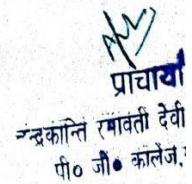 प्राचार्या
न्द्रकान्ति रमावती देवी
पी० जी० कालेज,